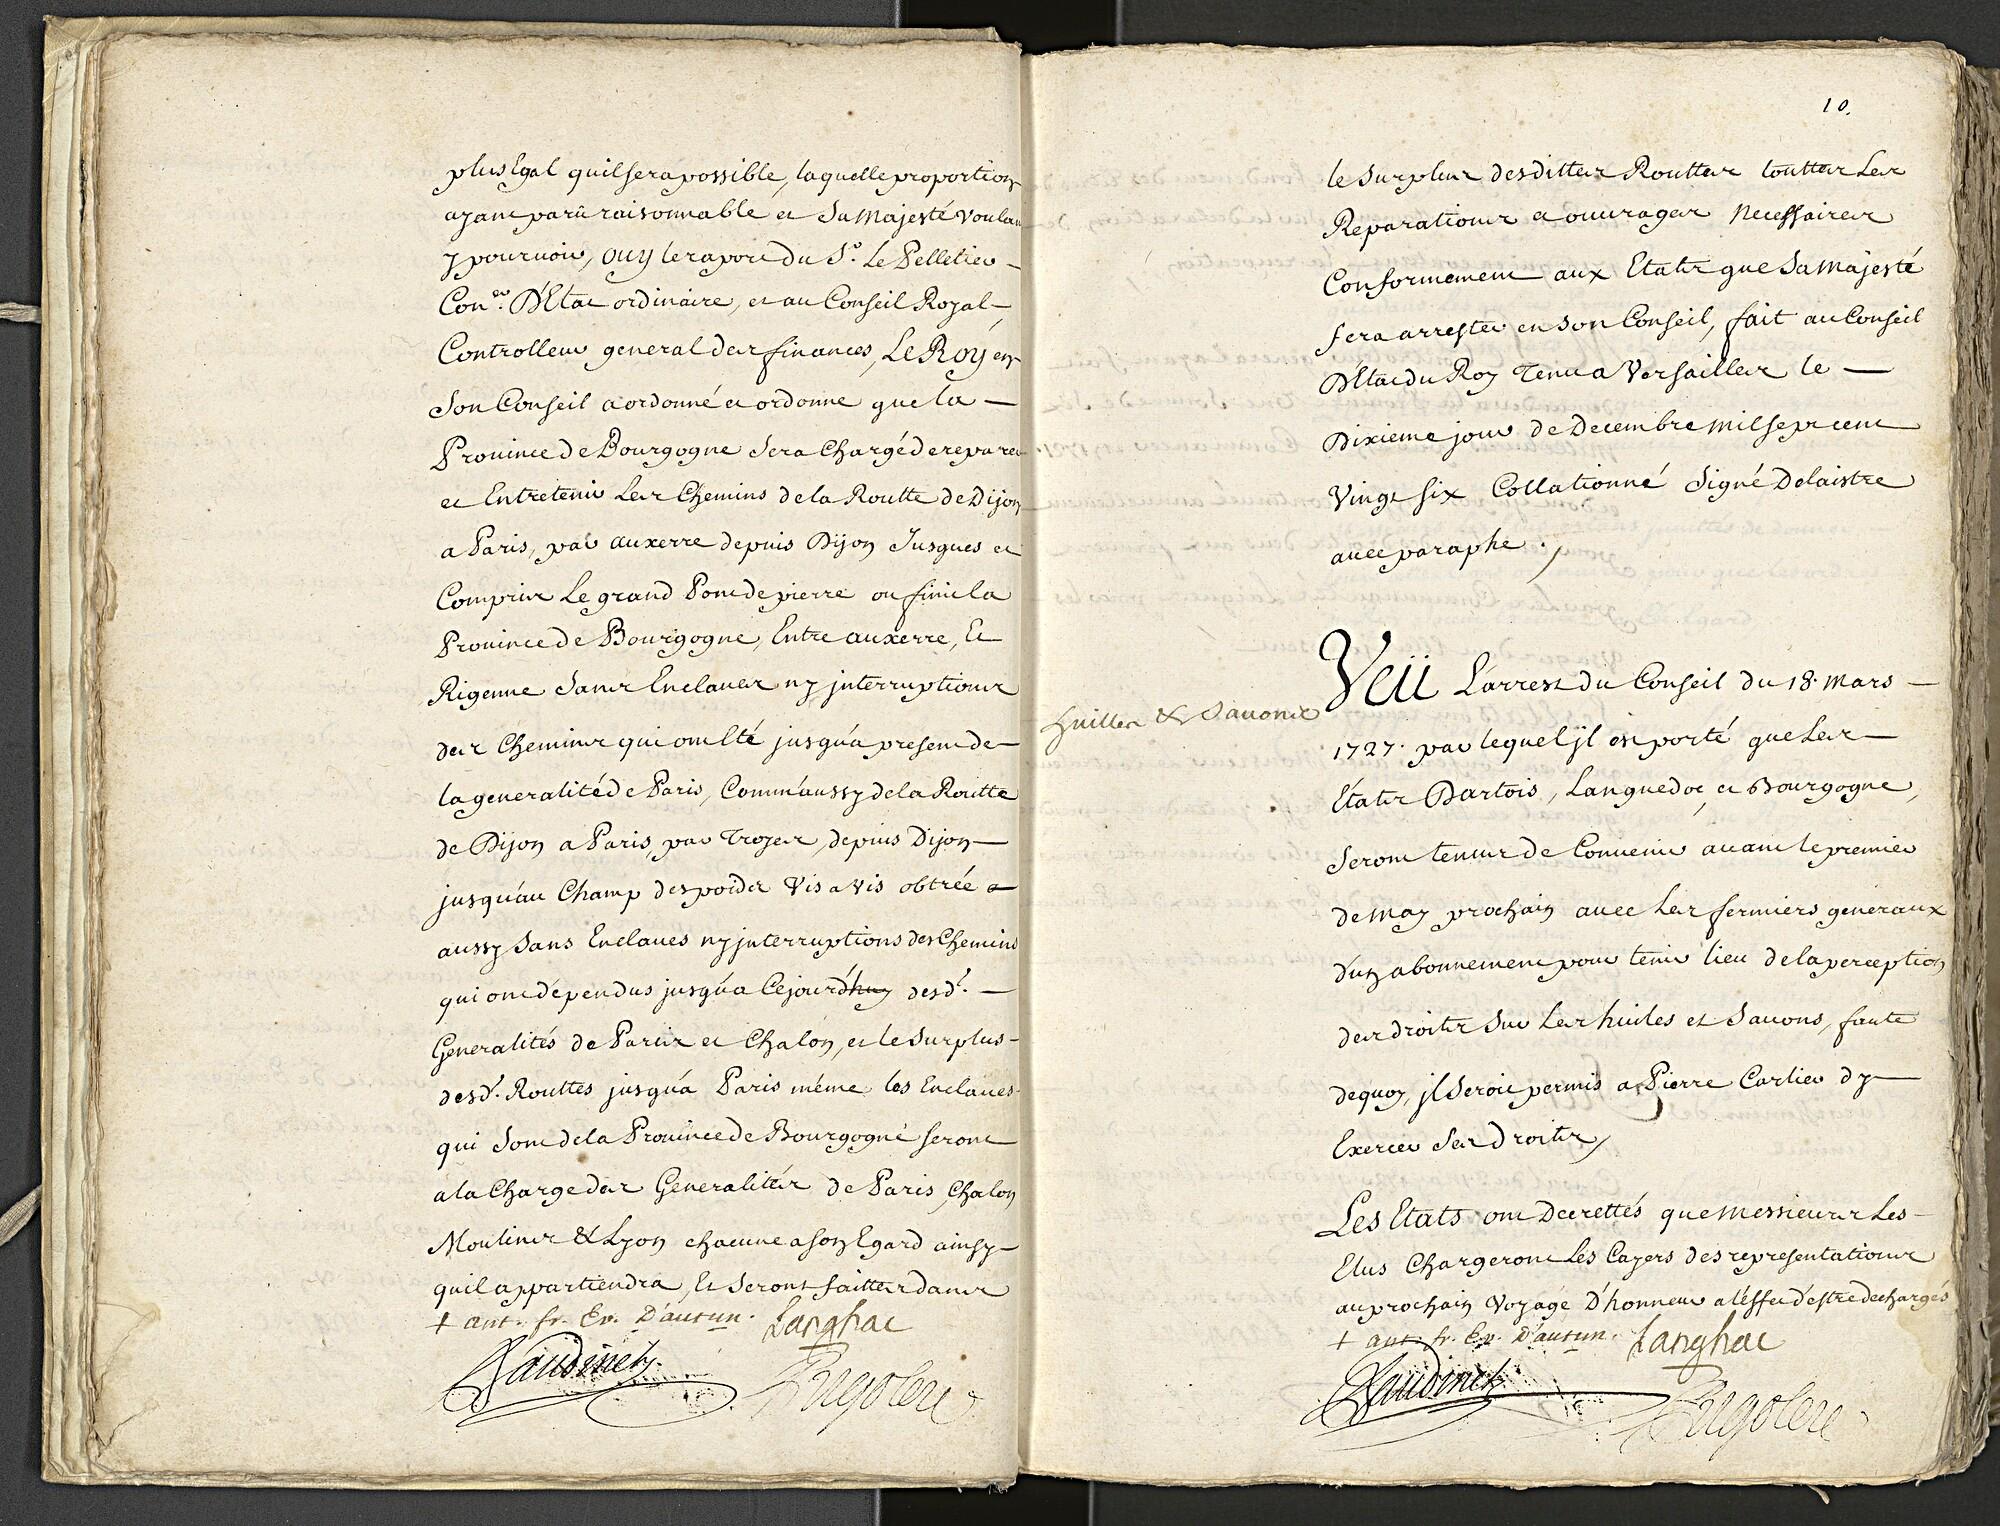 plus Egal quil sera possible, laquelle proportion
ayant parû raisonnable et Sa Majesté voulant
y pouruoir, ouy le raport du Sr. Le Pelletier
Conser. D'Etat ordinaire, et au Conseil Royal
Controlleur general des finances, Le Roy en
Son Conseil a ordonné et ordonne que la
Prouince de Bourgogne Sera Chargé de reparer
et Entretenir Les Chemins de la Routte de Dijon
a Paris, par auxerre depuis Dijon Jusques et
Compris Le grand Pont de pierre ou finit la
Prouince de Bourgogne, Entre auxerre, Et
Rigenne Sans Enclaues ny jnterruptions
des Chemins qui ont Eté jusqu'a present de
la generalité de Paris, Comm'aussy de la Routte
de Dijon a Paris, par Troyes, depuis Dijon
jusqu'au Champ des poides Vis a Vis obtrée
aussy Sans Enclaues ny jnterruptions des Chemins
qui ont dépendus jusqu'a Cejourd'huy desd.
Generalités de Paris et Chalon, et le Surplus
desd. Routtes jusqu'a Paris méme les Enclaues
qui Sont de la Prouince de Bourgogne seront
a la Charge des Generalités de Paris, Chalon
Moulins & Lyon chacune a son Egard ainsy
quil appartiendra, Et Seront faittes dans
+ ant. fr. Ev. D'autun. Langhac
Baudinet Rigoley
10.
le Surplus desdittes Routtes touttes Les
Reparations et ouurages Necessaires
Conformement aux Etats que Sa Majesté
fera arrester en Son Conseil, fait au Conseil
D'Etat du Roy Tenu a Versailles le
Dixieme jour de Decembre mil sept cent
Vingt six Collationné Signé Delaistre
auec paraphe.
Huilles & Sauons
Veü L'arrest du Conseil du 18. Mars
1727. par lequel jl est porté que Les
Etats D'artois, Languedoc, et Bourgogne,
Seront tenus de Conuenir auant le premier
de May prochain auec Les fermiers generaux
d'un abonnement pour tenir lieu de la perception
des droits Sur Les huiles et Sauons, faute
dequoy, jl Seroit permis a Pierre Carlier d'y
Exercer Ses Droits,
Les Etats ont Decrettés que Messieurs Les
Elus Chargeront Les Cayers des representations
au prochain Voyage D'honneur a l'effet d'estre dechargés
+ ant. fr. Ev. D'autun. Langhac
Baudinet Rigoley